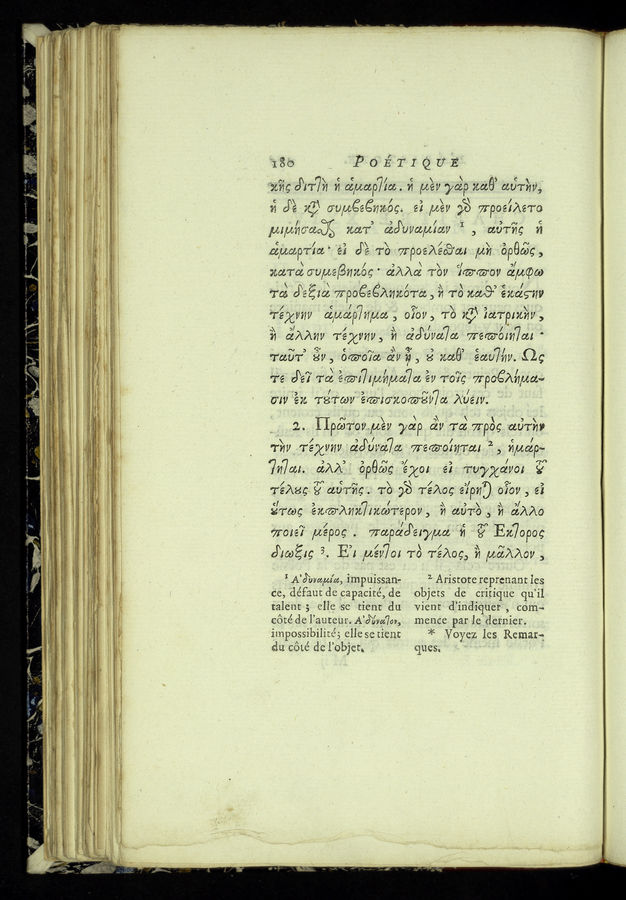 180 POÉTIQUE
κῆς διττὴ ἡ ἁμαρτία. ἡ μὲν γὰρ καθ' αὑτὴν,
ἡ δὲ κατὰ συμβεβηκός. εἰ μὲν γὰρ προείλετο
μιμήσασθαι κατ' ἀδυναμίαν ¹, αὐτῆς ἡ
ἁμαρτία· εἰ δὲ τὸ προελέσθαι μὴ ὀρθῶς,
κατὰ συμεβηκός· ἀλλὰ τὸν ἵππον ἄμφω
τὰ δεξιὰ προβεβληκότα, ἢ τὸ καθ' ἑκάστην
τέχνην ἁμάρτημα, οἷον, τὸ κατ' ἰατρικὴν,
ἢ ἄλλην τέχνην, ἢ ἀδύνατα πεποίηται·
ταῦτ' οὖν, ὁποῖα ἂν ᾖ, οὐ καθ' ἑαυτήν. Ὥς
τε δεῖ τὰ ἐπιτιμήματα ἐν τοῖς προβλήμα-
σιν ἐκ τούτων ἐπισκοποῦντα λύειν.
2. Πρῶτον μὲν γὰρ ἂν τὰ πρὸς αὐτὴν
τὴν τέχνην ἀδύνατα πεποίηται ², ἡμάρ-
τηται. ἀλλ' ὀρθῶς ἔχοι εἰ τυγχάνοι τοῦ
τέλους τοῦ αὑτῆς. τὸ γὰρ τέλος εἴρηται οἷον, εἰ
οὕτως ἐκπληκτικώτερον, ἢ αὐτὸ, ἢ ἄλλο
ποιεῖ μέρος. παράδειγμα ἡ τοῦ Εκτορος
διωξις ³. Εἰ μέντοι τὸ τέλος, ἢ μᾶλλον,
¹ Α'δυναμία, impuissan-
ce, défaut de capacité, de
talent; elle se tient du
côté de l'auteur. Α'δύνατον,
impossibilité; elle se tient
du côté de l'objet.
² Aristote reprenant les
objets de critique qu'il
vient d'indiquer, com-
mence par le dernier.
* Voyez les Remar-
ques.